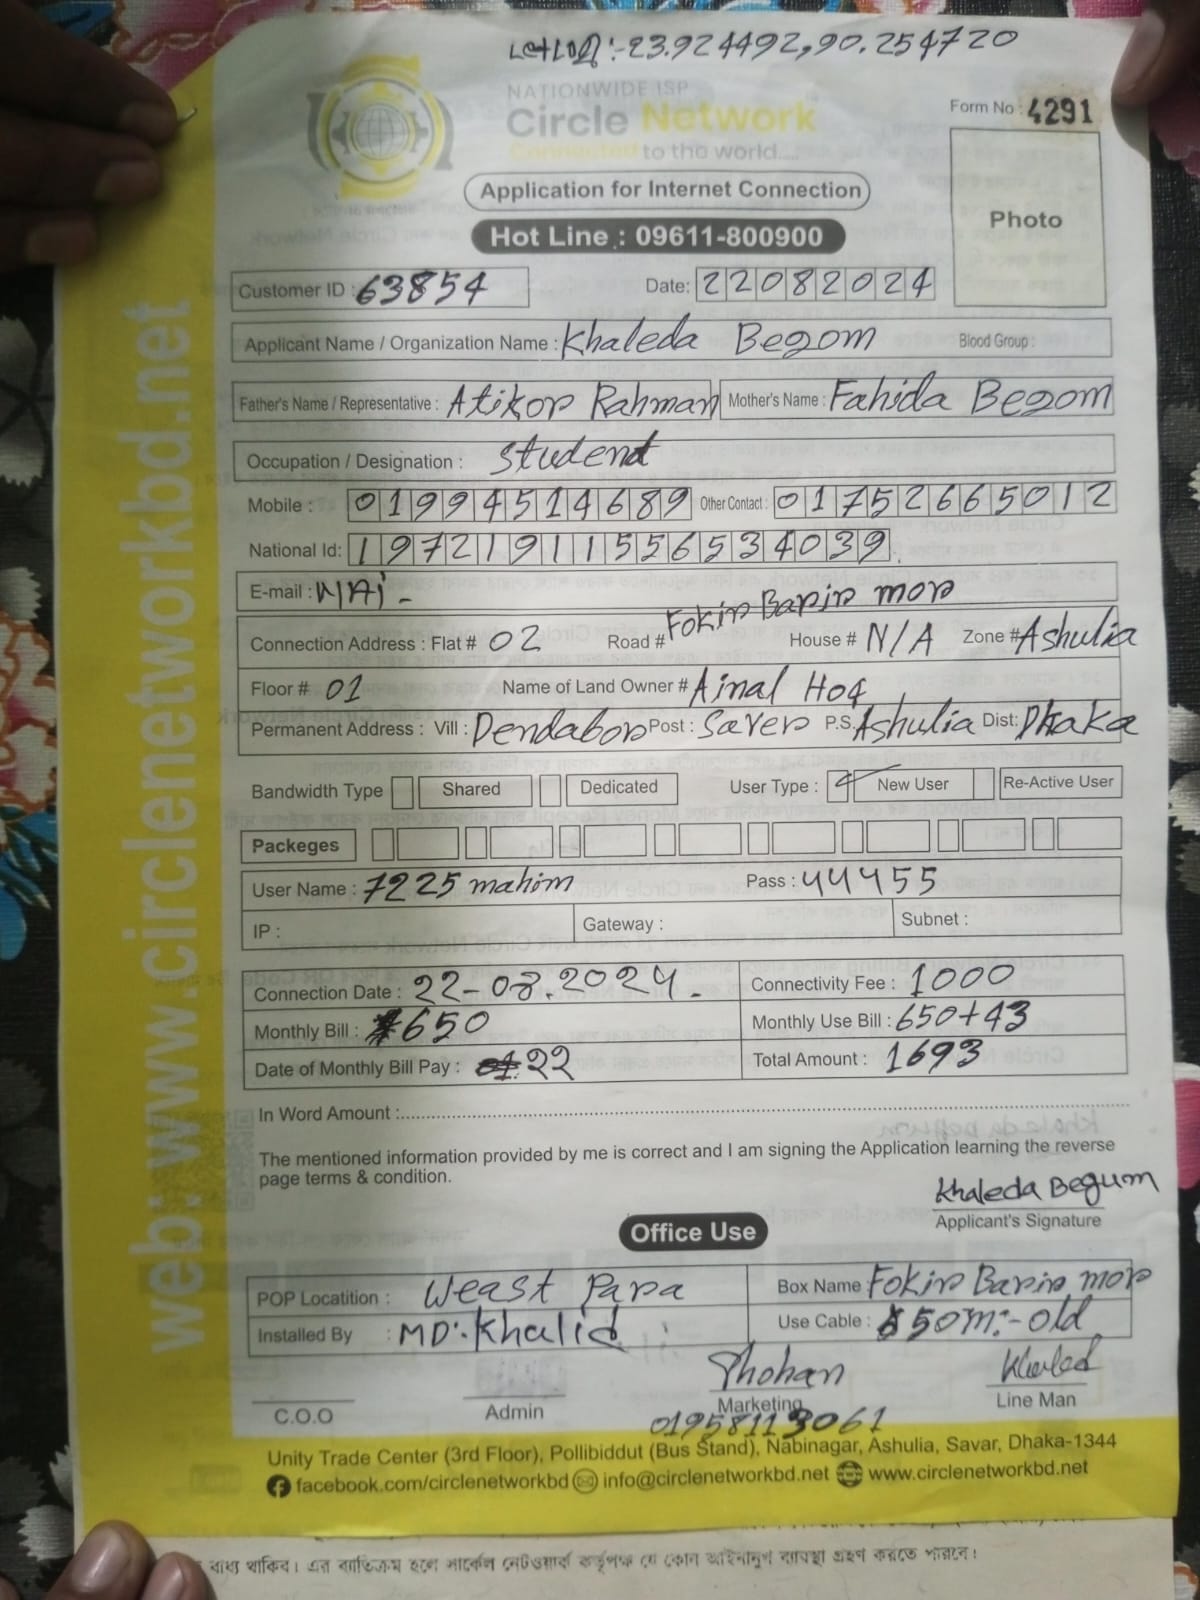 :-23.924492,90.254720
NATIONWIDE ISP
Circle Network
Connected to the world....
Form No : 4291
Application for Internet Connection
Photo
Hot Line : 09611-800900
Customer ID : 63854 Date: 22082024
Applicant Name / Organization Name : Khaleda Begom Blood Group :
Father's Name / Representative : Atikor Rahman Mother's Name : Fahida Begom
Occupation / Designation : Student
Mobile : 01994514689 Other Contact : 01752665012
National Id: 19721911556534039
E-mail : N/A
Connection Address : Flat # 02 Road # Fokir Barir mor House # N/A Zone # Ashulia
Floor # 01 Name of Land Owner # Ainal Hoq
Permanent Address : Vill : Dendabor Post : Saver P.S. Ashulia Dist: Dhaka
Bandwidth Type Shared Dedicated User Type : New User Re-Active User
Packeges
User Name : 7225 mahim Pass : 44455
IP : Gateway : Subnet :
Connection Date : 22-08.2024. Connectivity Fee : 1000
Monthly Bill : 650 Monthly Use Bill : 650+43
Date of Monthly Bill Pay : 22 Total Amount : 1693
In Word Amount :
The mentioned information provided by me is correct and I am signing the Application learning the reverse
page terms & condition.
Khaleda Begum
Applicant's Signature
Office Use
POP Locatition : Weast Para Box Name Fokir Barir mor
Installed By : MD:-Khalid Use Cable : 50m:-old
Khaled
C.O.O Admin Marketing Line Man
01958113061
Unity Trade Center (3rd Floor), Pollibiddut (Bus Stand), Nabinagar, Ashulia, Savar, Dhaka-1344
facebook.com/circlenetworkbd info@circlenetworkbd.net www.circlenetworkbd.net
web: www.circlenetworkbd.net
বাধ্য থাকিব। এর ব্যতিক্রম হলে সার্কেল নেটওয়ার্ক কর্তৃপক্ষ যে কোন আইনানুগ ব্যবস্থা গ্রহণ করতে পারবে।